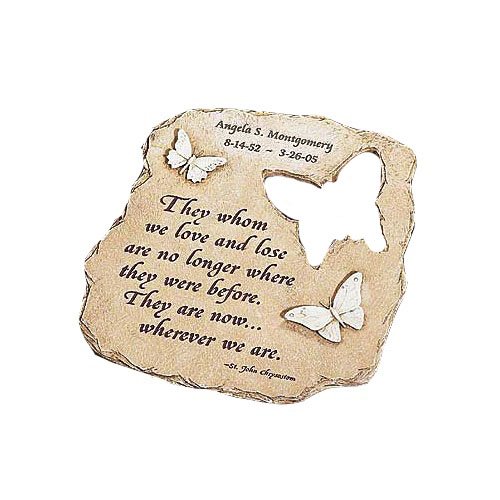 Angela S. Montgomery
8-14-52 ~ 3-26-05
They whom
we love and lose
are no longer where
they were before.
They are now...
wherever we are.
~St. John Chrysostom